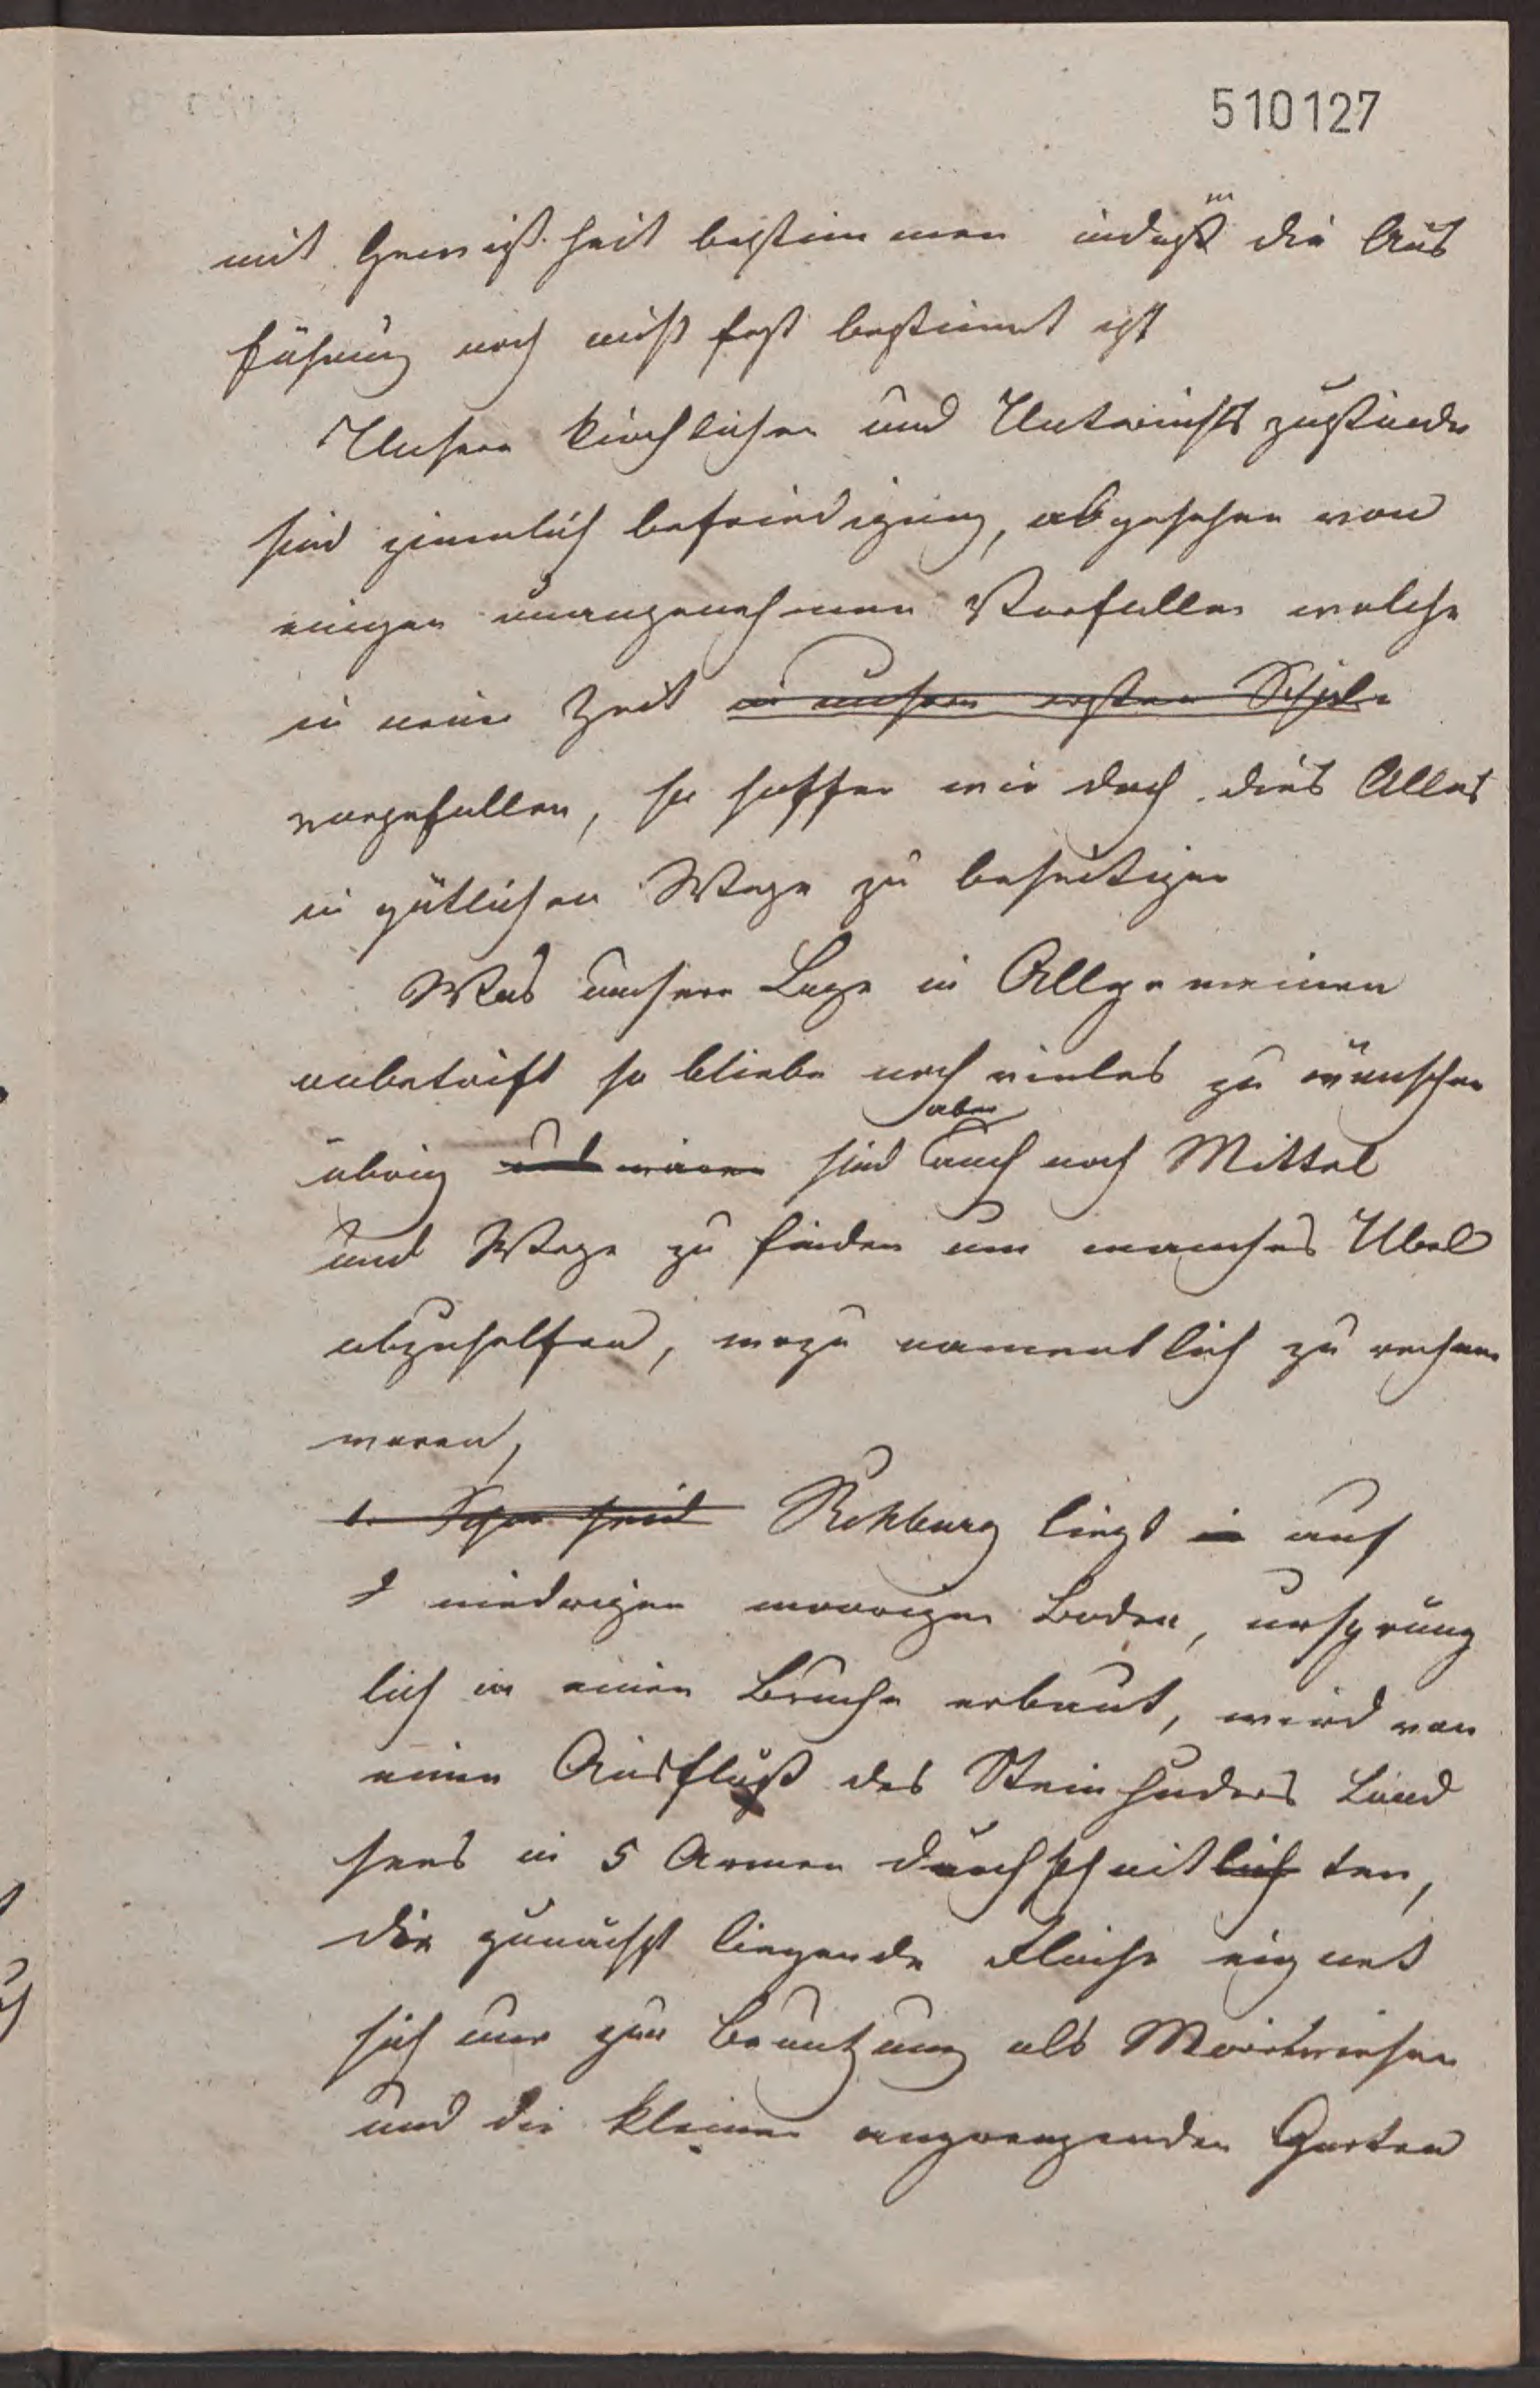 510127
mit Gewißheit bestimmen indeßen die Aus
führung noch nicht fest bestimmt ist
Unsere kirchlichen und Unterrichts zustände
sind ziemlich befriedigung, abgesehen von
einigen unangenehmen Vorfallen welche
in neuer Zeit in unsern ersten Schule
vorgefallen, so hoffen wir doch dies Alles
in gütlichen Wege zu beseitigen
Was unsere Lage in Allgemeinen
anbetrift so bliebe noch vieles zu wünschen
aber
übrig und wären sind auch noch Mittel
und Wege zu finden um manches Übel
abzuhelfen, wozu namentlich zu rechnen
waren,
1. Rehburg liegt in auf
niedrigen moorigen Boden, ursprüng
lich in einen Bruche erbaut, wird von
einen Ausfluß des Steinhuders Land
sees in 5 Armen durchschnitlich ten,
die zunächst liegende Flache eignet
sich nur zur Benutzung als
und die kleinen angrenzenden Garten